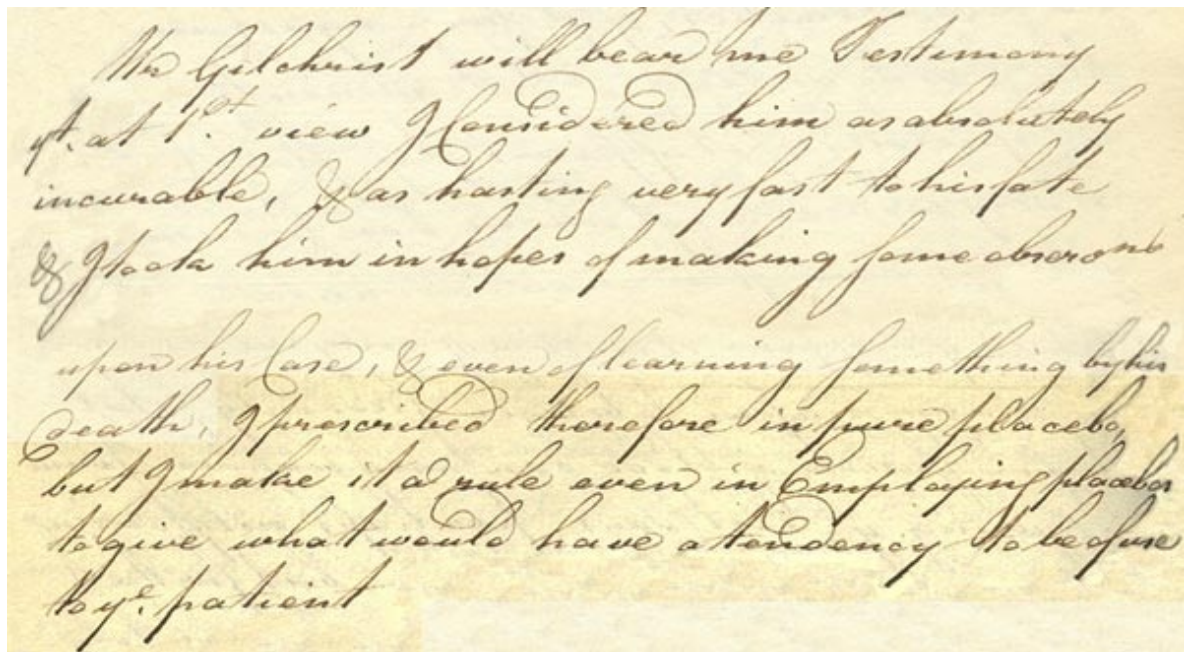 Mr Gilchrist will bear me Testimony
yt. at 1st. view I Considered him as absolutely
incurable, & as hasting very fast to his fate
& I took him in hopes of making some observons
upon his Case, & even of learning something by his
death, I prescribed therefore in pure placebo,
but I make it a rule even in Employing placebos
to give what would have a tendency to be of use
to ye. patient